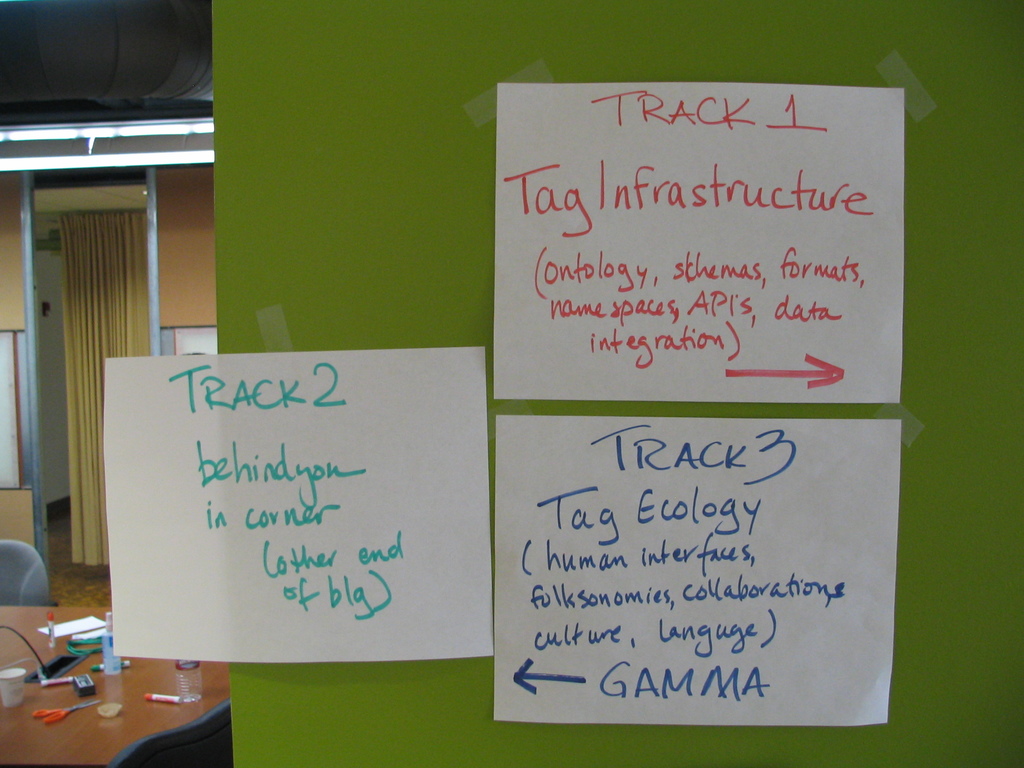 TRACK 1
Tag Infrastructure
(ontology, schemas, formats,
namespaces, API's, data
integration)
TRACK 2
behind you
in corner
(other end
of blg)
TRACK 3
Tag Ecology
(human interfaces,
folksonomies, collaborations,
culture, language)
GAMMA